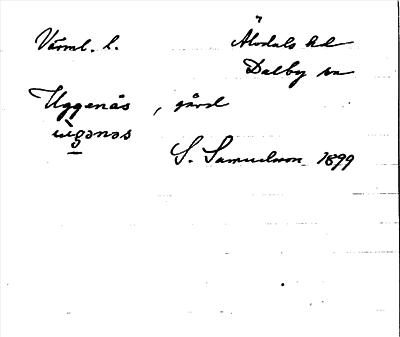 Värml. l. Älvdals hd
Dalby sn
Uggenäs, gård
ùgənæs
S. Samuelsson 1899